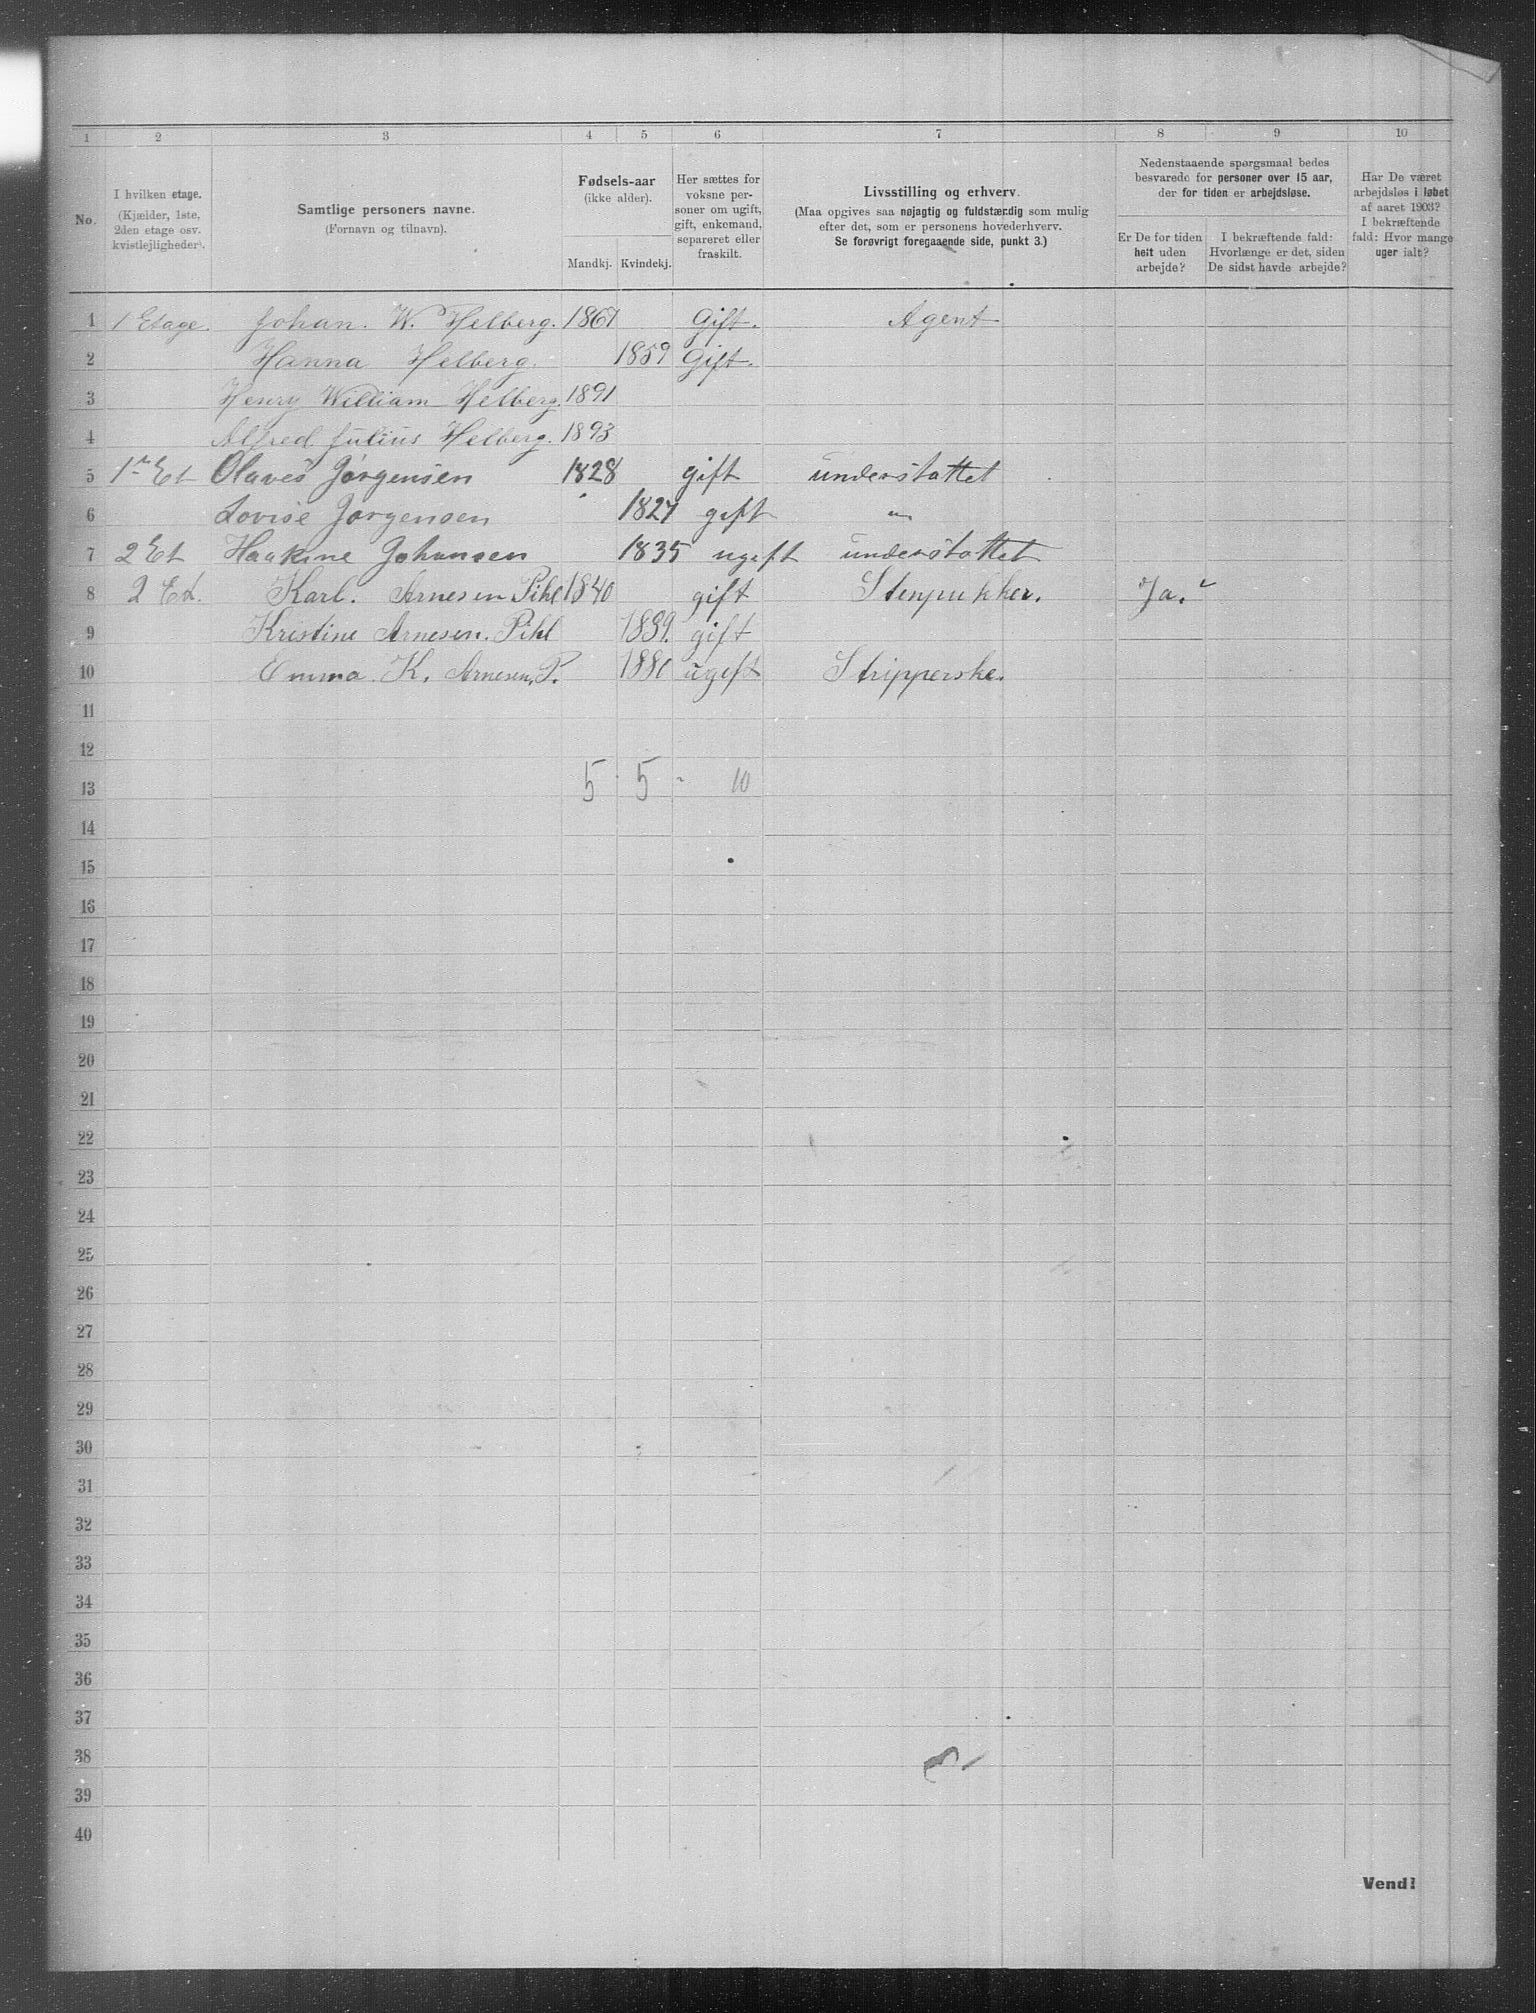 1 2 3 4 5 6 7 8 9 10
No.
I hvilken etage.
(Kjælder, 1ste,
2den etage osv.
kvistlejligheder).
Samtlige personers navne.
(Fornavn og tilnavn).
Fødsels-aar
(ikke alder).
Mandkj. Kvindekj.
Her sættes for
voksne per-
soner om ugift,
gift, enkemand,
separeret eller
fraskilt.
Livsstilling og erhverv.
(Maa opgives saa nøjagtig og fuldstændig som mulig
efter det, som er personens hovederhverv.
Se forøvrigt foregaaende side, punkt 3.)
Nedenstaaende spørgsmaal bedes
besvarede for personer over 15 aar,
der for tiden er arbejdsløse.
Er De for tiden
helt uden
arbejde?
I bekræftende fald:
Hvorlænge er det, siden
De sidst havde arbejde?
Har De været
arbejdsløs i løbet
af aaret 1903?
I bekræftende
fald: Hvor mange
uger ialt?
1 1 Etage. Johan. W. Helberg. 1867 Gift. Agent
2 Hanna Helberg. 1859 Gift.
3 Henry William Helberg. 1891
4 Alfred Julius Helberg. 1893
5 1ᵗᵉ Et Olaves Jørgensen 1828 gift understøttet
6 Lovise Jørgensen 1827 gift "
7 2 Et Haakine Johansen 1835 ugift understøttet
8 2 Et. Karl. Arnesen Pihl 1840 gift Stenpukker. Ja.
9 Kristine Arnesen. Pihl 1839. gift
10 Emma K. Arnesen. P. 1880 ugift Stripperske.
11
12
13 5 5 - 10
14
15
16
17
18
19
20
21
22
23
24
25
26
27
28
29
30
31
32
33
34
35
36
37
38
39
40
Vend!